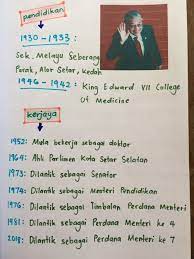 pendidikan
1930 - 1933 :
Sek. Melayu Seberang
Perak, Alor Setar, Kedah
1946 - 1942 : King Edward VII College
Of Medicine
kerjaya
1952: Mula bekerja sebagai doktor
1964: Ahli Parlimen Kota Setar Selatan
1973: Dilantik sebagai Senator
1974: Dilantik sebagai Menteri Pendidikan
1976: Dilantik sebagai Timbalan Perdana Menteri
1981: Dilantik sebagai Perdana Menteri ke 4
2018: Dilantik sebagai Perdana Menteri ke 7